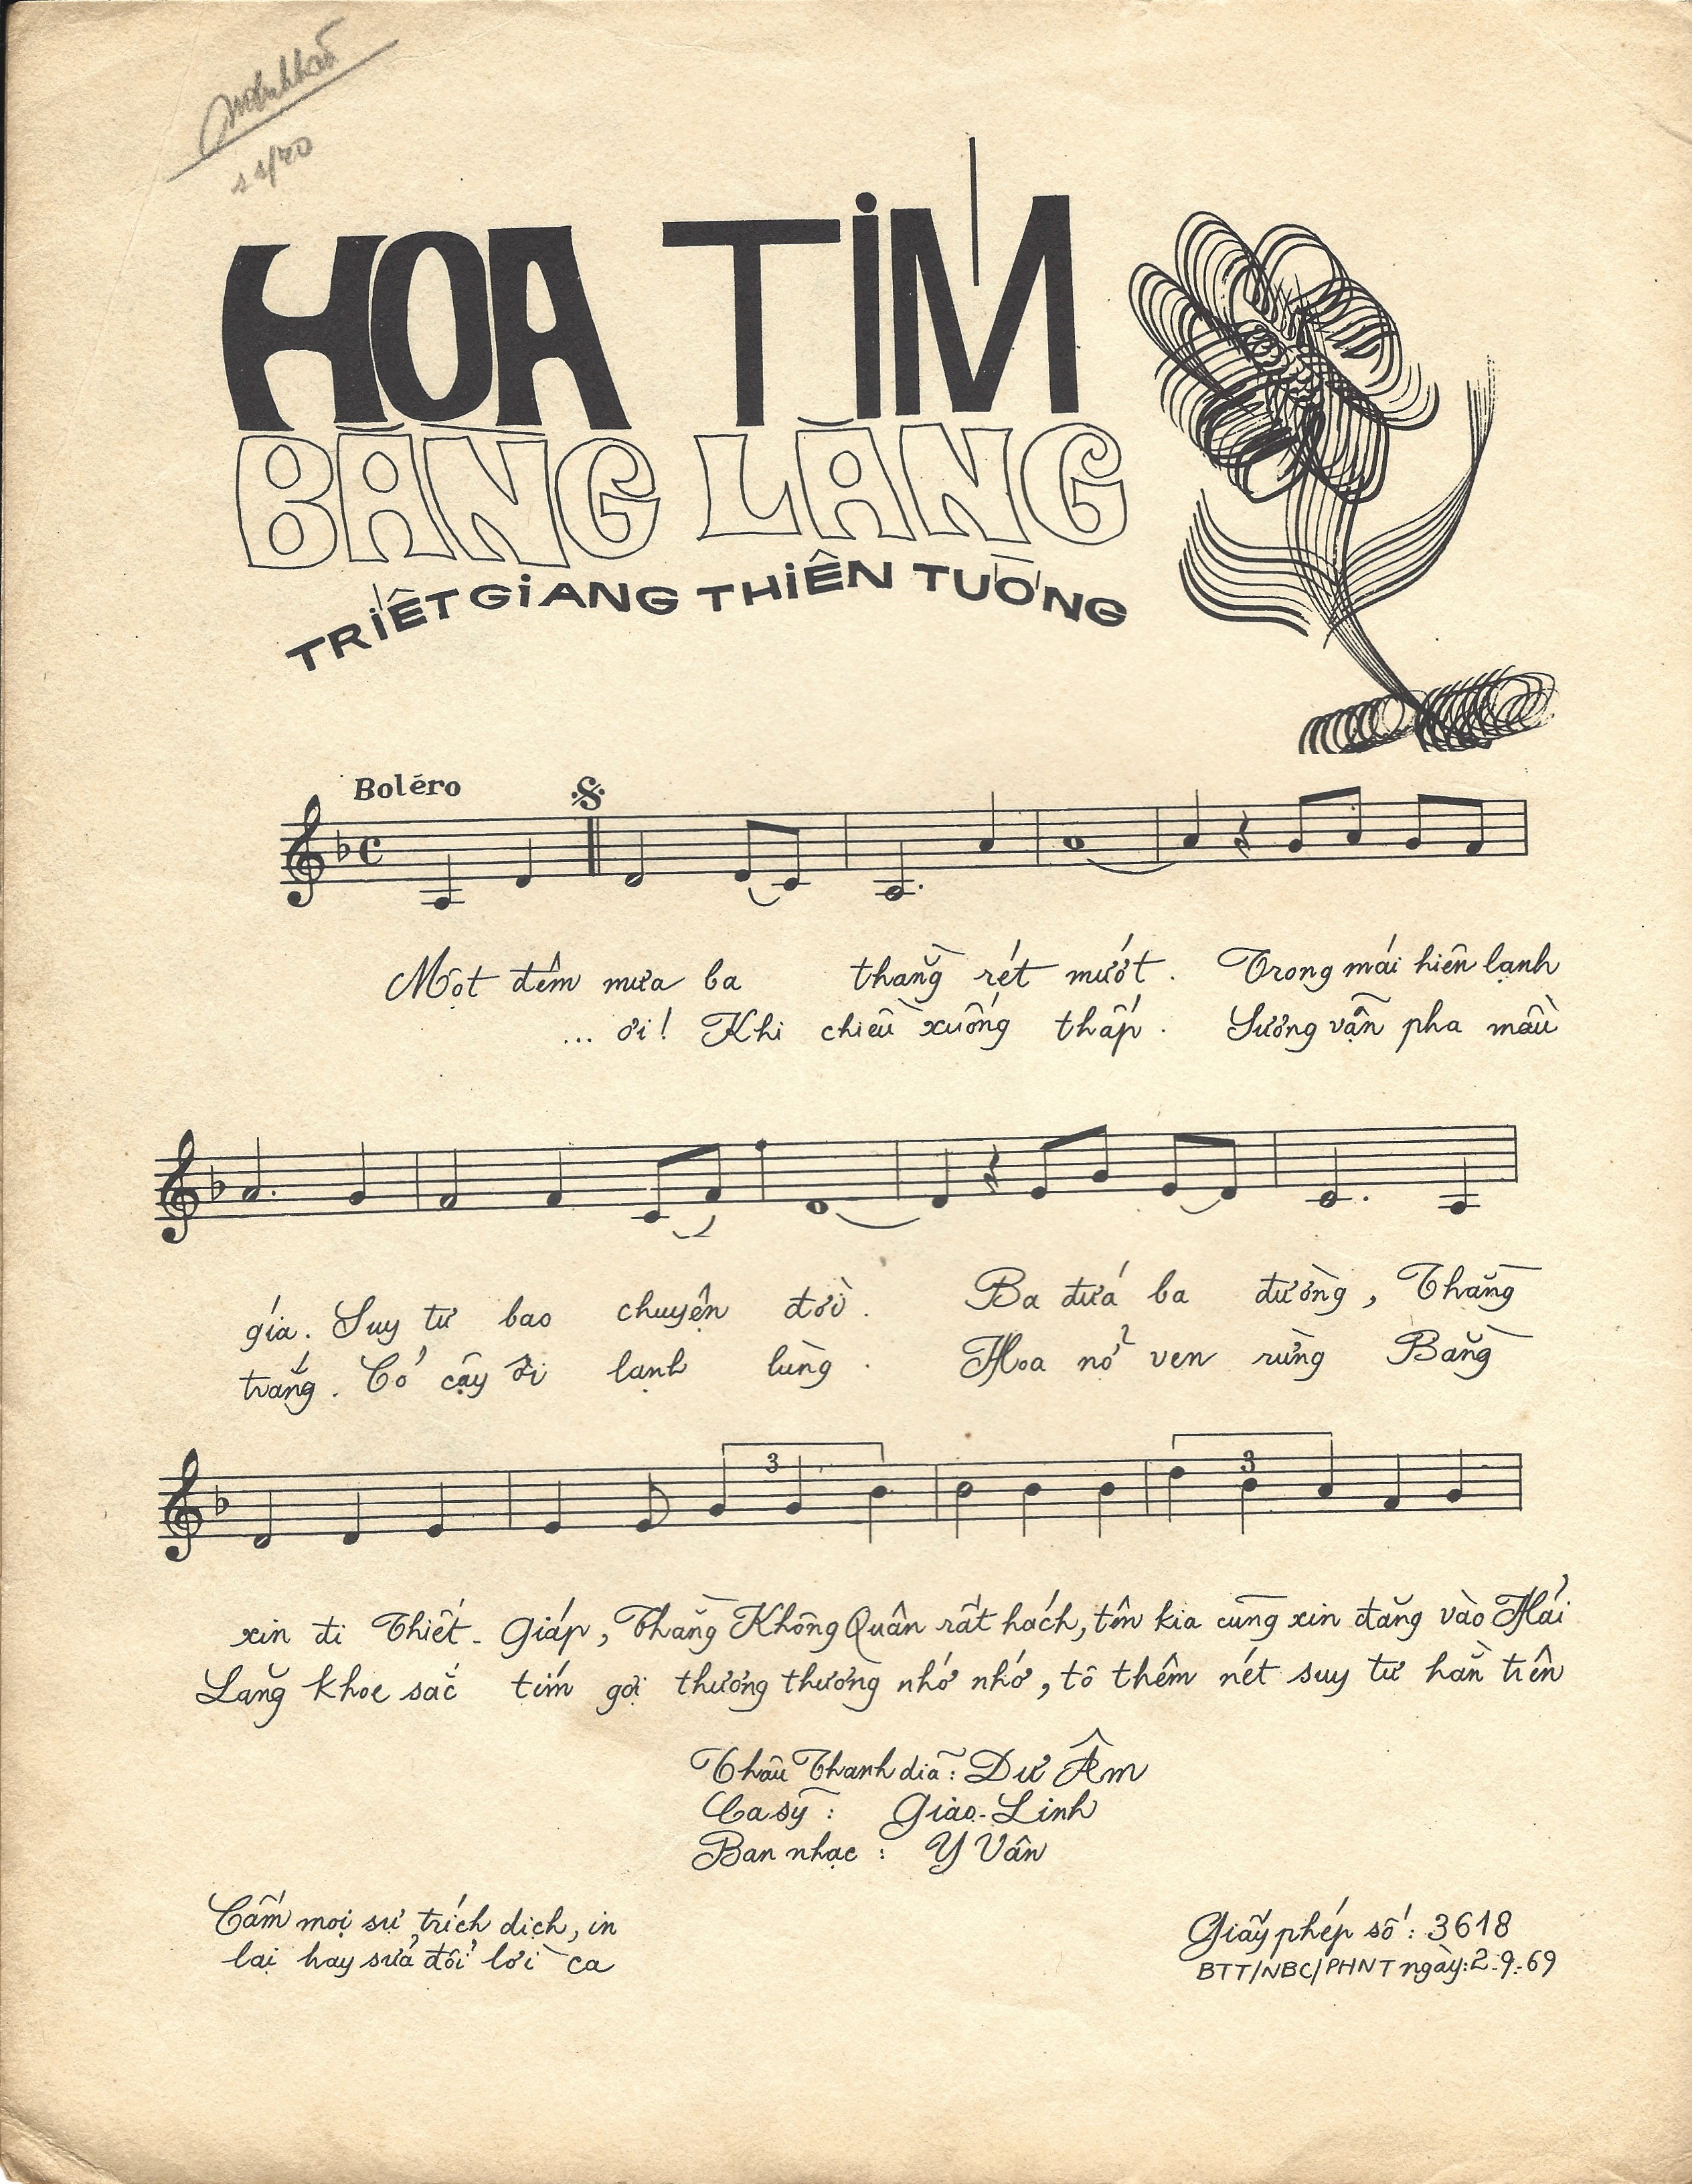 HOA TÍM
BẰNG LĂNG
TRIẾT GIANG THIÊN TƯỜNG
Boléro
Một đêm mưa ba thằng rét mướt. Trong mái hiên lạnh
... ơi! Khi chiều xuống thấp. Sương vẫn pha mầu
giá. Suy tư bao chuyện đời. Ba đứa ba đường, Thằng
trắng. Cỏ cây ơi lạnh lùng. Hoa nở ven rừng Bằng
3 3
xin đi Thiết-Giáp, Thằng Không Quân rất hách, tên kia cũng xin đăng vào Hải
Lăng khoe sắc tím gợi thương thương nhớ nhớ, tô thêm nét suy tư hằn trên
Thâu Thanh dĩa: Dư Âm
Ca sỹ: Giao-Linh
Ban nhạc: Y Vân
Cấm mọi sự trích dịch, in
lại hay sửa đổi lời ca
Giấy phép số: 3618
BTT/NBC/PHNT ngày: 2-9-69